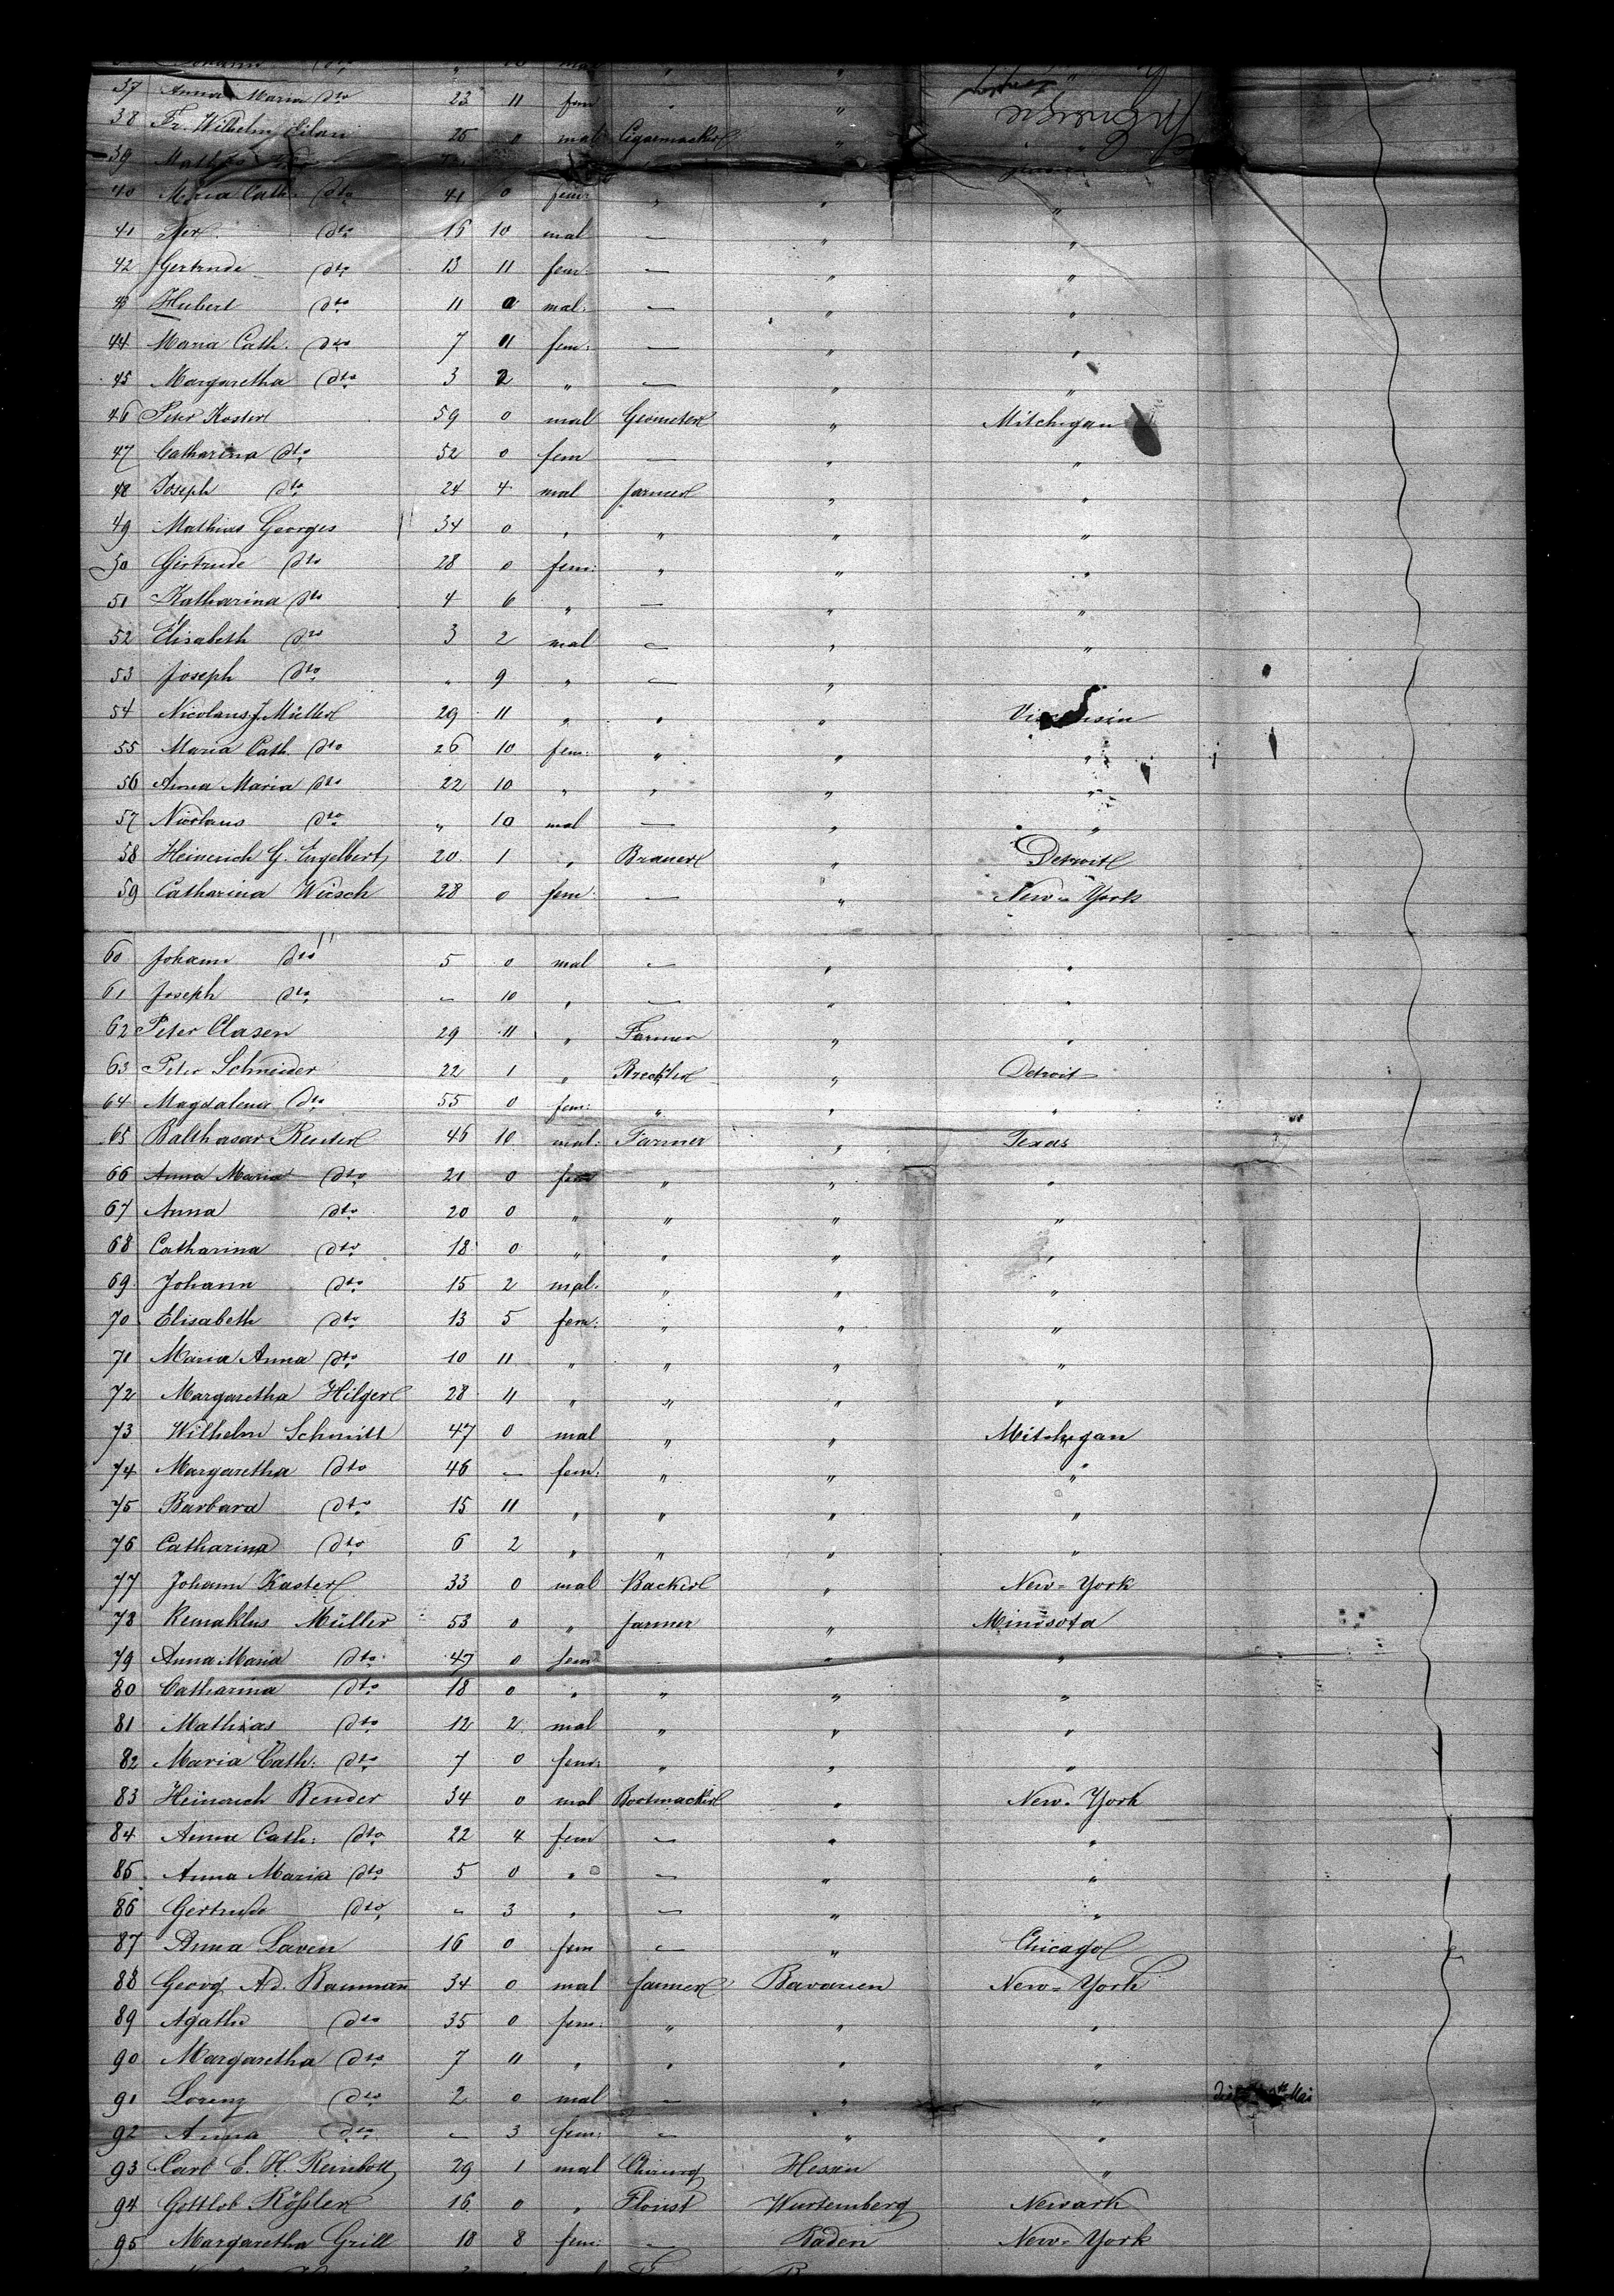 37 Anna Maria dto 23 11 fem " "
38 Fr. Wilhelm 25 0 mal Cigarmacker "
39 Mathias
40 Maria Cath. dto 41 0 fem: " " "
41 dto 15 10 mal — " "
42 Gertrude dto 13 11 fem: — " "
43 Hubert dto 11 0 mal: — " "
44 Maria Cath. dto 7 11 fem: — " "
45 Margaretha dto 3 2 " — " "
46 Peter Koster 59 0 mal Geometer " Mitchigan
47 Catharina dto 52 0 fem — " "
48 Joseph dto 24 4 mal farmer " "
49 Mathias Georges 34 0 " " " "
50 Girtrude dto 28 0 fem: " " "
51 Katharina dto 4 6 " — " "
52 Elisabeth dto 3 2 mal — " "
53 Joseph dto " 9 " — "
54 Nicolaus J Müller 29 11 " " " Visconsin
55 Maria Cath. dto 26 10 fem: " " "
56 Anna Maria dto 22 10 " " " "
57 Nicolaus dto " 10 mal — " "
58 Heinerich G. Engelbert 20 1 " Brauer " Detroit
59 Catharina Wiesch 28 0 fem: — " New-York
60 Johann dto 5 0 mal — " "
61 Joseph dto — 10 " — " "
62 Peter Clasen 29 11 " Farmer " "
63 Peter Schneider 22 1 " " Detroit
64 Magdalena dto 55 0 fem: " " "
65 Balthasar Reuter 46 10 mal: Farmer " Texas
66 Anna Maria dto 21 0 fem " " "
67 Anna dto 20 0 " " " "
68 Catharina dto 18 0 " " " "
69 Johann dto 15 2 mal. " " "
70 Elisabeth dto 13 5 fem: " " "
71 Maria Anna dto 10 11 " " " "
72 Margaretha Hilger 28 11 " " " "
73 Wilhelm Schmitt 47 0 mal " " Mitchigan
74 Margaretha dto 46 — fem: " " "
75 Barbara dto 15 11 " " " "
76 Catharina dto 6 2 " " " "
77 Johann Kaster 33 0 mal Backer " New-York
78 Remaklus Müller 53 0 " farmer " Minosota
79 Anna Maria dto 47 0 fem " "
80 Catharina dto 18 0 " " " "
81 Mathias dto 12 2 mal " " "
82 Maria Cath: dto 7 0 fem: " " "
83 Heinerich Bender 34 0 mal Bootmacker " New-York
84 Anna Cath: dto 22 4 fem — " "
85 Anna Maria dto 5 0 " — " "
86 Gertrude dto — 3 " — " "
87 Anna Laven 16 0 fem — " Chicago
88 Georg Ad. Baumañ 34 0 mal farmer Bavarien New-York
89 Agatha dto 35 0 fem: " " "
90 Margaretha dto 7 11 " " " "
91 Lorenz dto 2 0 mal — " " Mai
92 Anna dto — 3 fem: — " "
93 Carl E. H. Reinbott 29 1 mal Chirurg Hessen "
94 Gottlob Rößler 16 0 " Florist Wurtemberg Newark
95 Margaretha Grill 18 8 fem: — Baden New-York